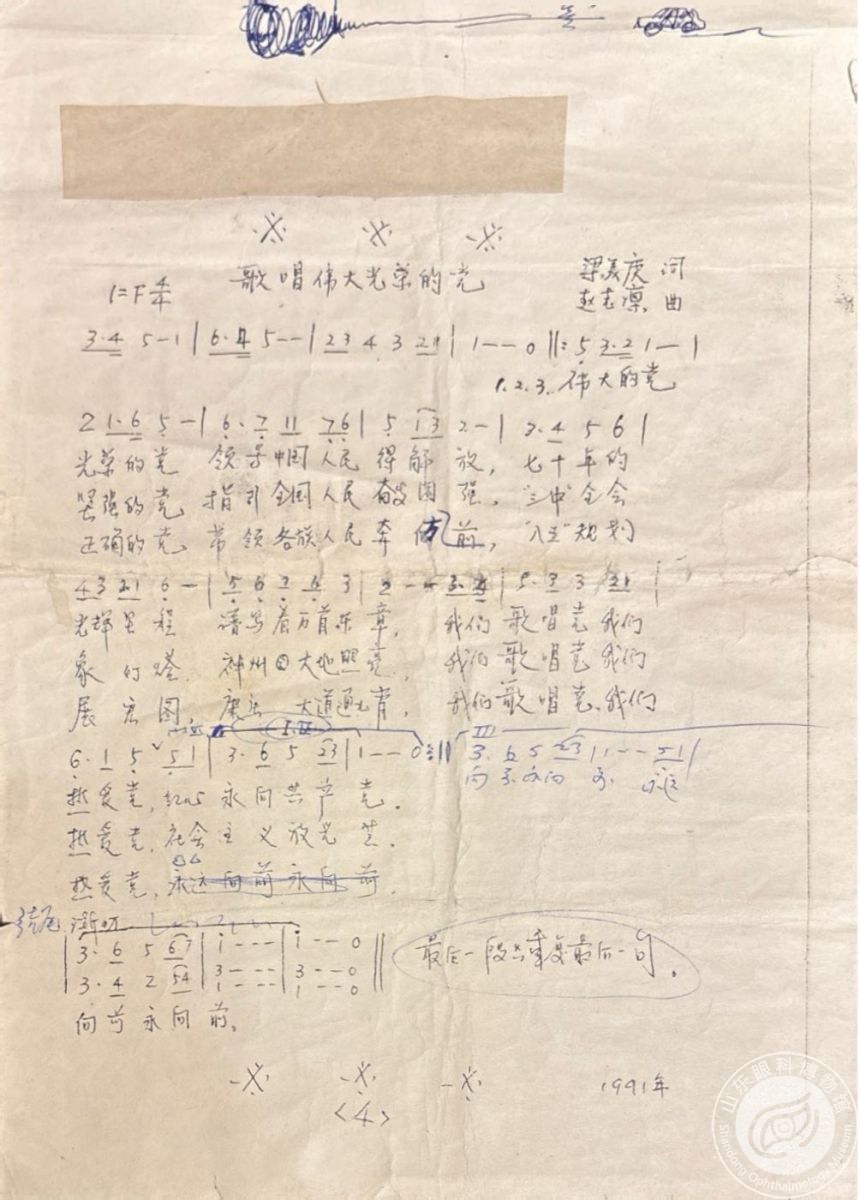 歌唱伟大光荣的党
1=F 4/4
梁美庚 词
赵志凛 曲
3·4 5-1 | 6·4 5-- | 23 4 3 21 | 1--0 ‖: 5 3·2 1-- |
1.2.3. 伟大的党
2 1·6 5- | 6·7 11 76 | 5 13 2- | 3·4 5 6 |
光荣的党 领导中国人民得解放，七十年的
坚强的党 指引全国人民奋发图强，"三中"全会
正确的党 带领各族人民奔 方前，"八五"规划
43 21 6- | 5 6 7 6 3 |
光辉里程 谱写着万首乐章，我们歌唱党 我们
象灯塔 神州 大地照亮，我们歌唱党 我们
展宏图， 大道通 ，我们歌唱党、我们
I.II
III
6·1 5 51 | 3·6 5 23 | 1--0 :‖ 3·6 5 23 | 1--51 |
向
热爱党， 永向共产党.
热爱党，社会主义放光芒.
热爱党，永远向前永向前.
结尾 渐慢
3·6 5 67 | 1--- | 1--0 ‖
3·4 2 54 | 3--- | 3--0
1--- 1--0
向前永向前。
最后一段共重复最后一句.
1991年
<4>
山东眼科博物馆
Shandong Ophthalmology Museum